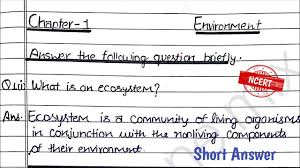 Chapter-1 Environment
Answer the following question briefly.
Q.1(i) What is an ecosystem?
NCERT
Ans: Ecosystem is a community of living organisms
in conjunction with the nonliving components
of their environment.
Short Answer